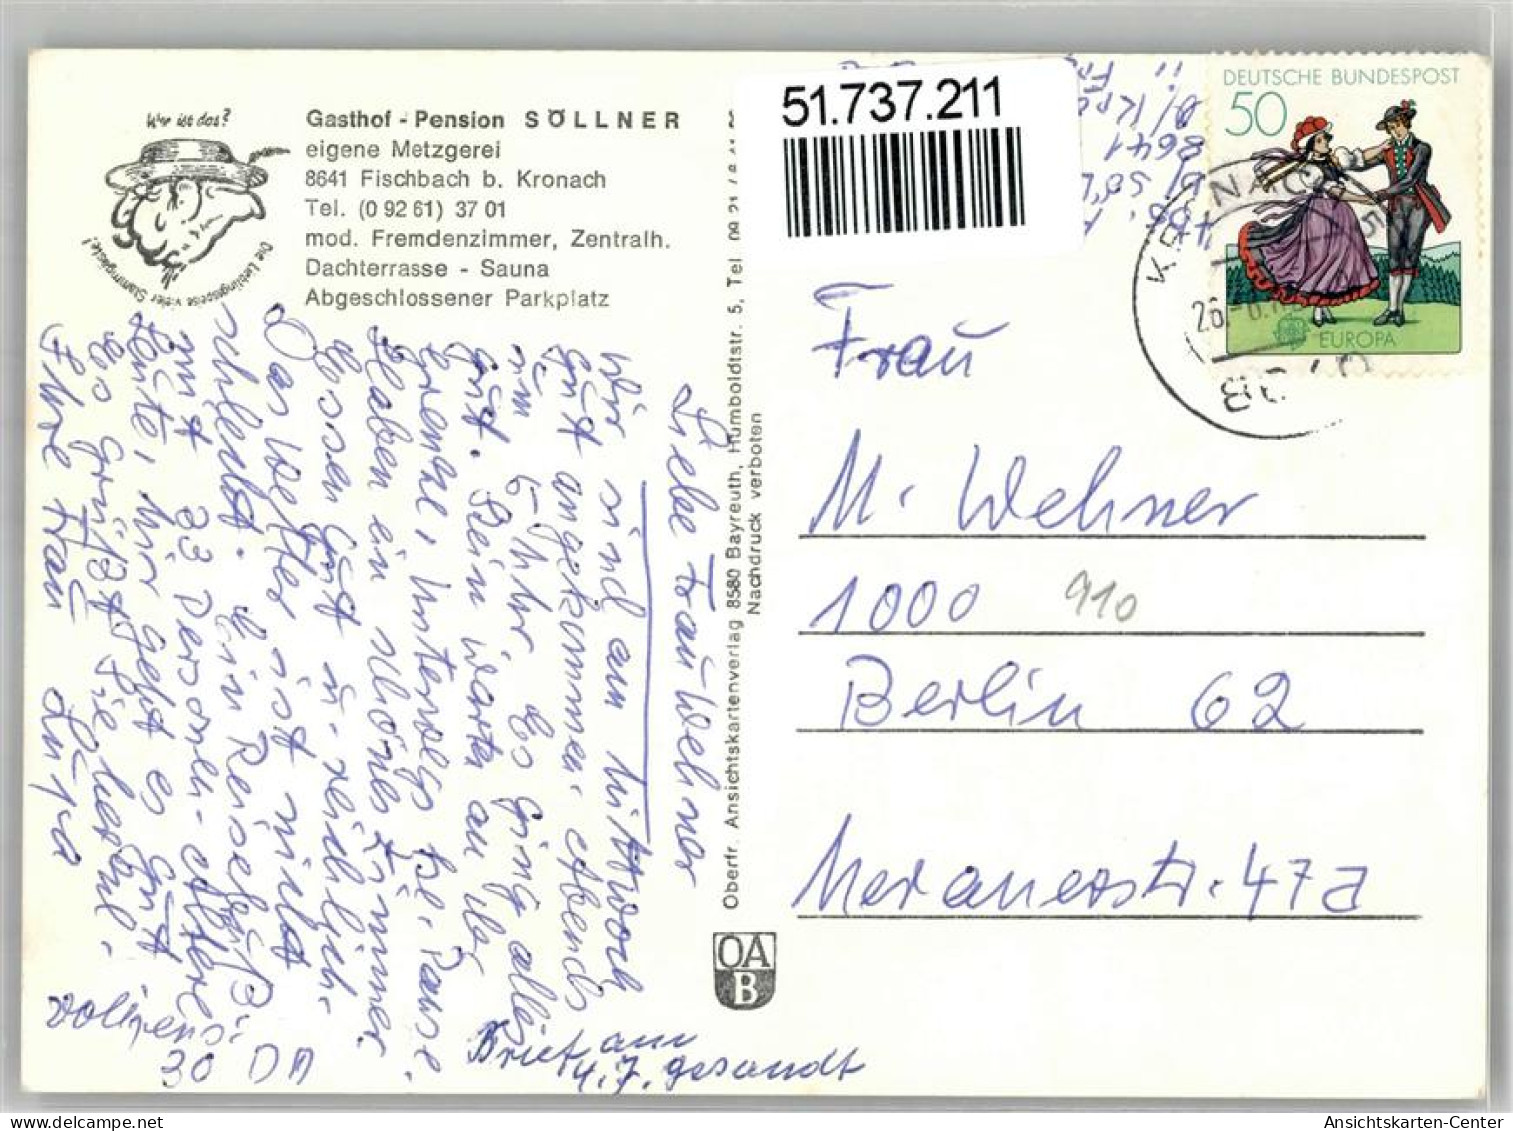 Wer ist das?
Die Lieblingsspeise vieler Stammgäste!
Gasthof - Pension SÖLLNER
eigene Metzgerei
8641 Fischbach b. Kronach
Tel. (0 92 61) 37 01
mod. Fremdenzimmer, Zentralh.
Dachterrasse - Sauna
Abgeschlossener Parkplatz
Liebe Frau Wehner
Wir sind am Mittwoch
gut angekommen. Abends
um 5 Uhr. Es ging alles
gut. Kein warten an der
Grenze, unterwegs Pause.
Haben ein schönes Zimmer
Essen gut u. reichlich.
Das Wetter ist nicht
schlecht. Ein Reisebus
mit 33 Personen - ältere
Leute, mir geht es gut.
Es grüßt Sie herzl.
Ihre Frau
30 DM
Brief am
4.7. gesandt
Oberfr. Ansichtskartenverlag 8580 Bayreuth, Humboldtstr. 5, Tel
Nachdruck verboten
OA
B
51.737.211
Abs.
8641
b/ Kro
DEUTSCHE BUNDESPOST
50
EUROPA
Frau
M. Wehner
1000 910
Berlin 62
Meranerstr. 47a
Ansichtskarten-Center